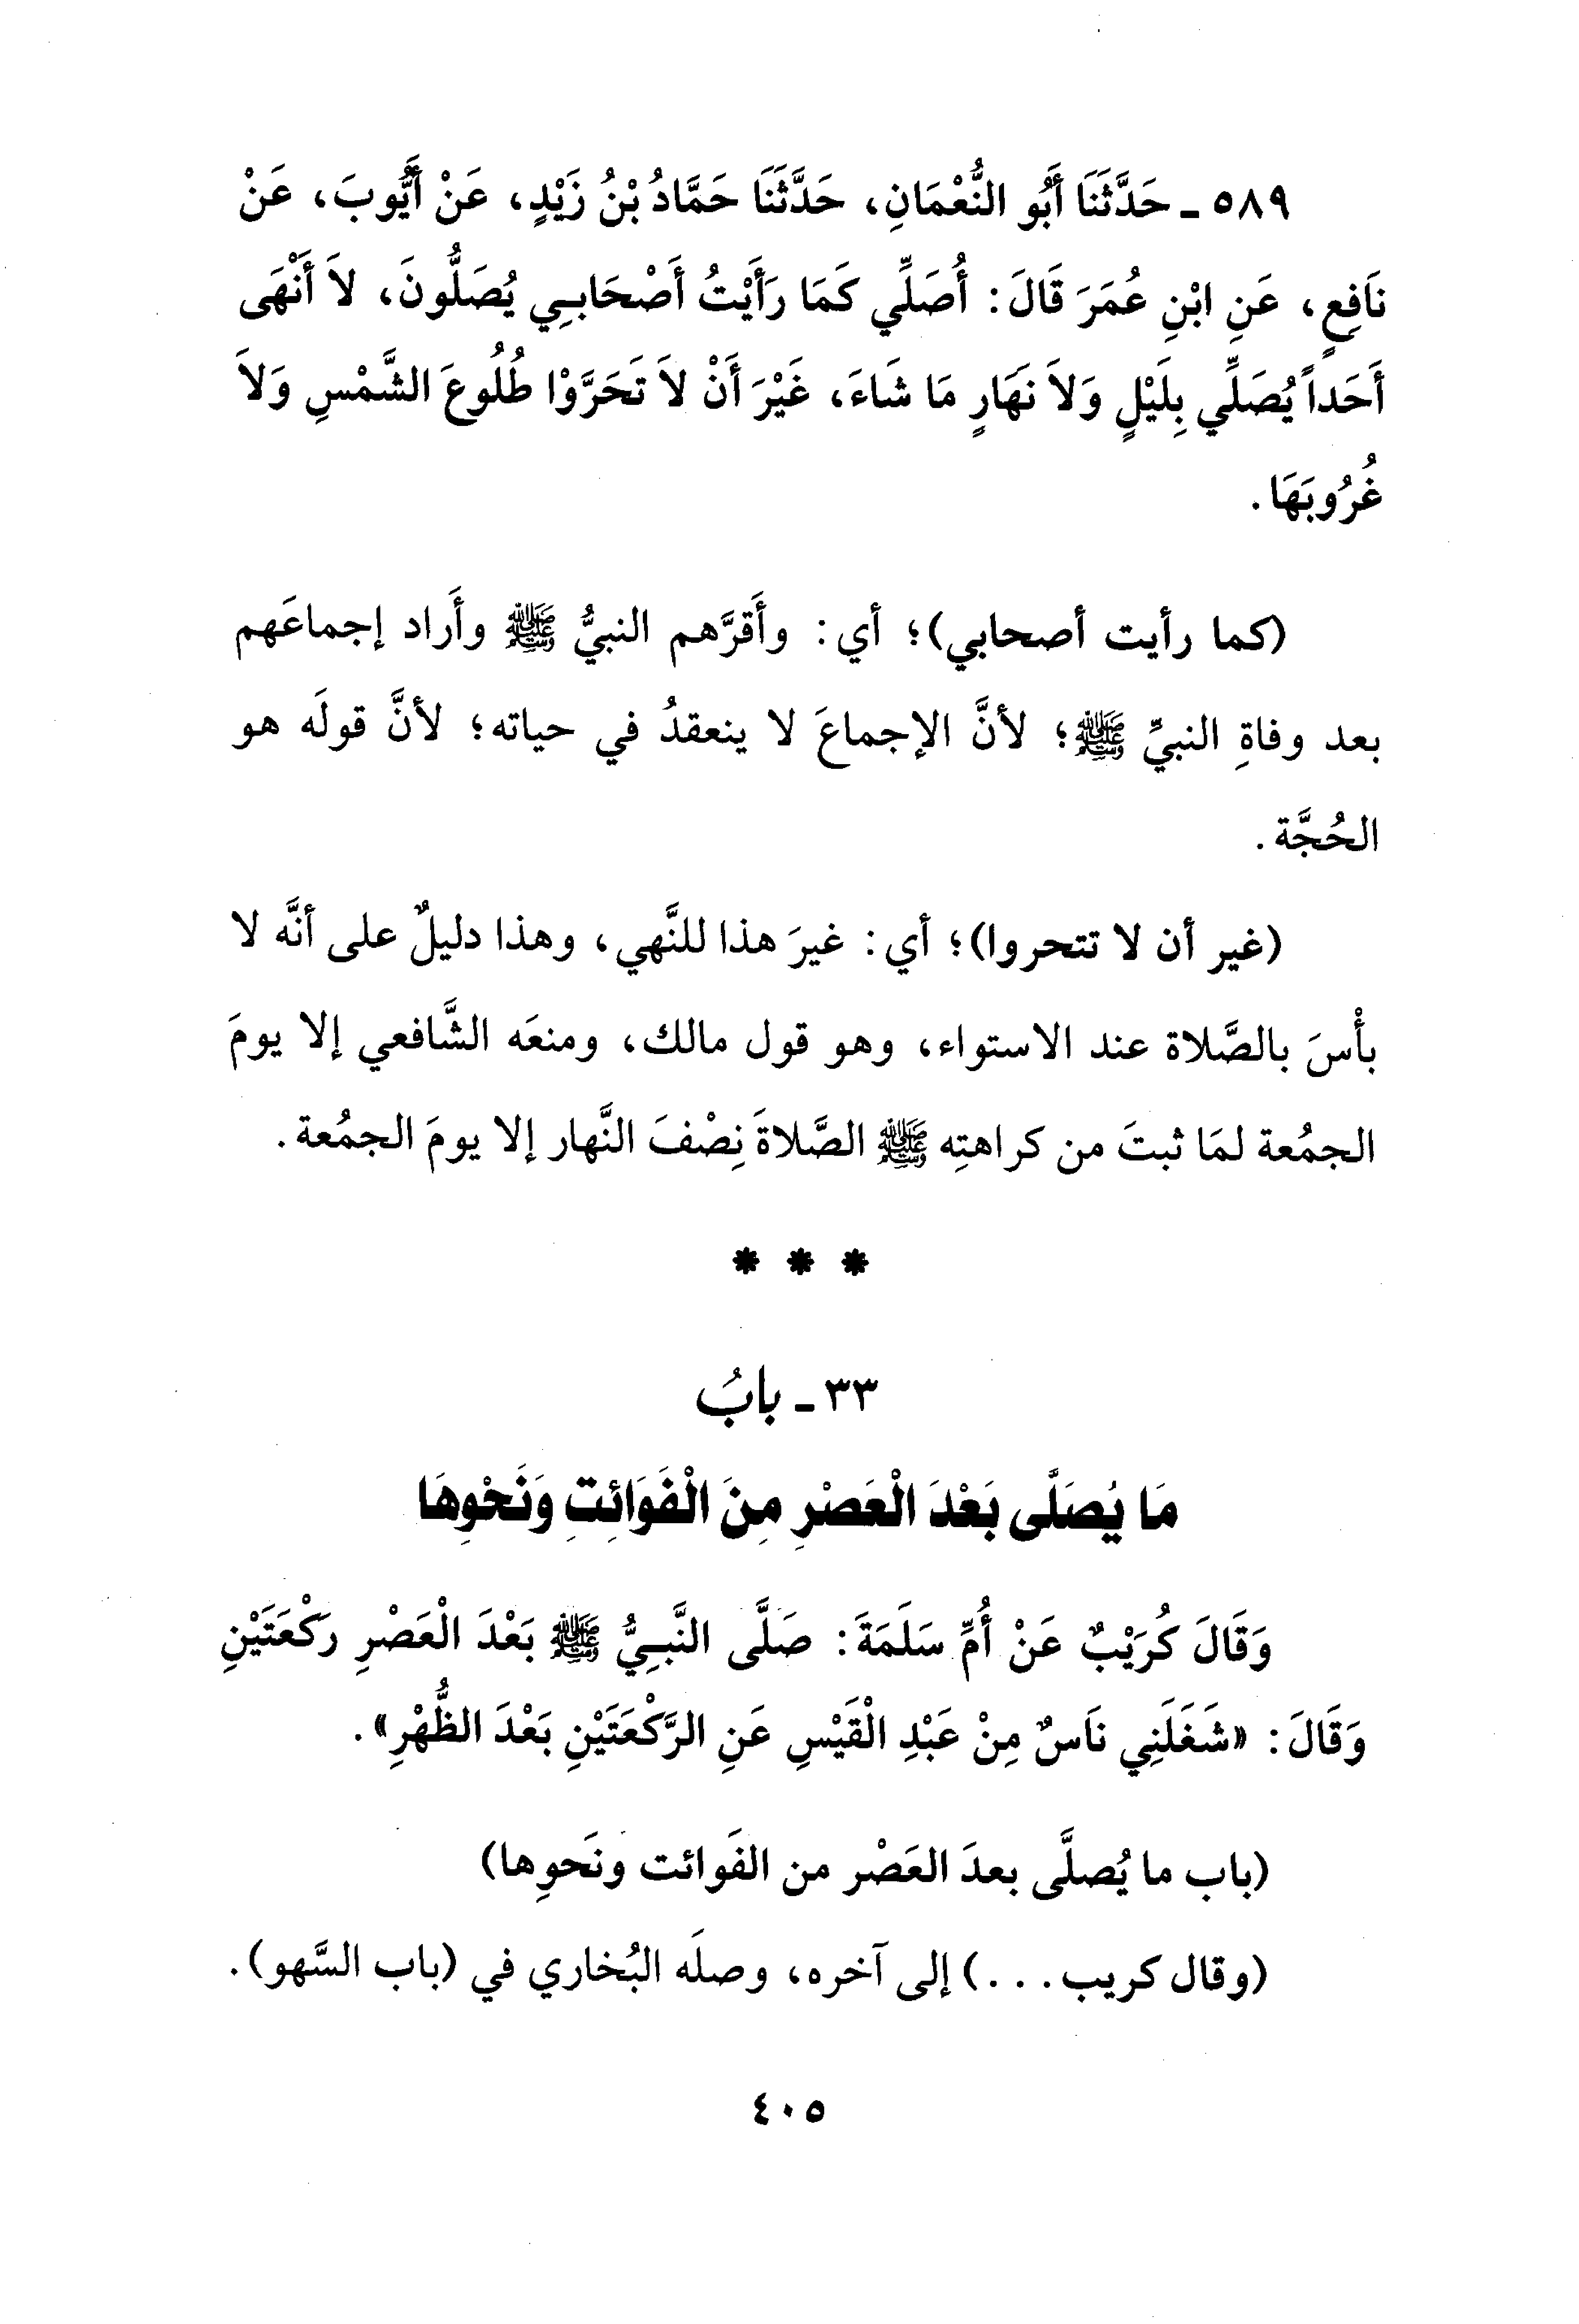 ٥٨٩ ـ حَدَّثَنَا أَبُو النُّعْمَانِ، حَدَّثَنَا حَمَّادُ بْنُ زَيْدٍ، عَنْ أَيُّوبَ، عَنْ
نَافِعٍ، عَنِ ابْنِ عُمَرَ قَالَ: أُصَلِّي كَمَا رَأَيْتُ أَصْحَابِي يُصَلُّونَ، لاَ أَنْهَى
أَحَداً يُصَلِّي بِلَيْلٍ وَلاَ نَهَارٍ مَا شَاءَ، غَيْرَ أَنْ لاَ تَحَرَّوْا طُلُوعَ الشَّمْسِ وَلاَ
غُرُوبَهَا.
(كما رأيت أصحابي)؛ أي: وأَقرَّهم النبيُّ ﷺ وأَراد إجماعَهم
بعد وفاةِ النبيِّ ﷺ؛ لأنَّ الإجماعَ لا ينعقدُ في حياته؛ لأنَّ قولَه هو
الحُجَّة.
(غير أن لا تتحروا)؛ أي: غيرَ هذا للنَّهي، وهذا دليلٌ على أنَّه لا
بأْسَ بالصَّلاة عند الاستواء، وهو قول مالك، ومنعَه الشَّافعي إلا يومَ
الجمُعة لمَا ثبتَ من كراهتِه ﷺ الصَّلاةَ نِصْفَ النَّهار إلا يومَ الجمُعة.
* * *
٣٣ ـ بابُ
مَا يُصَلَّى بَعْدَ الْعَصْرِ مِنَ الْفَوَائِتِ وَنَحْوِهَا
وَقَالَ كُرَيْبٌ عَنْ أُمِّ سَلَمَةَ: صَلَّى النَّبِيُّ ﷺ بَعْدَ الْعَصْرِ رَكْعَتَيْنِ
وَقَالَ: «شَغَلَنِي نَاسٌ مِنْ عَبْدِ الْقَيْسِ عَنِ الرَّكْعَتَيْنِ بَعْدَ الظُّهْرِ».
(باب ما يُصلَّى بعدَ العَصْر من الفَوائت ونَحوِها)
(وقال كريب...) إلى آخره، وصلَه البُخاري في (باب السَّهو).
٤٠٥